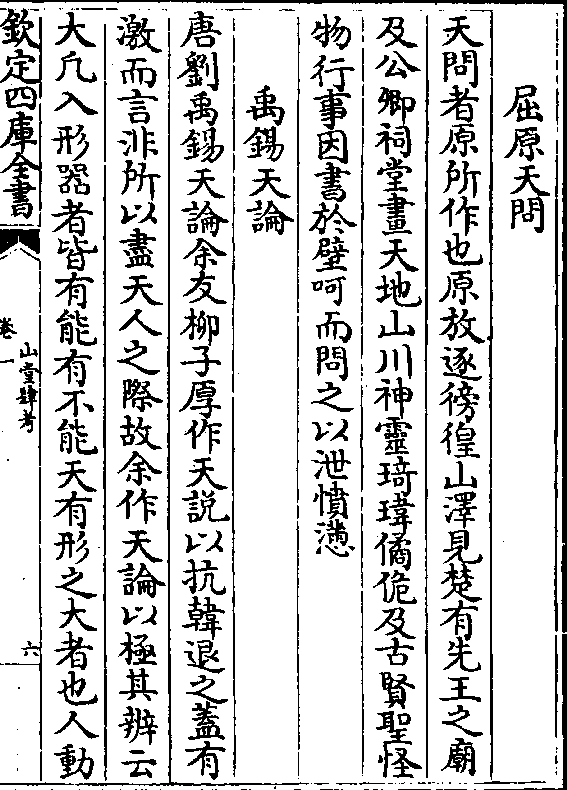 屈原天問
天問者原所作也原放逐徬徨山澤見楚有先王之廟
及公卿祠堂畫天地山川神靈琦瑋僪佹及古賢聖怪
物行事因書於壁呵而問之以泄憤懣
禹錫天論
唐劉禹錫天論余友柳子厚作天説以抗韓退之蓋有
激而言非所以盡天人之際故余作天論以極其辨云
大凡入形器者皆有能有不能天有形之大者也人動
欽定四庫全書
山堂肆考
卷一
六